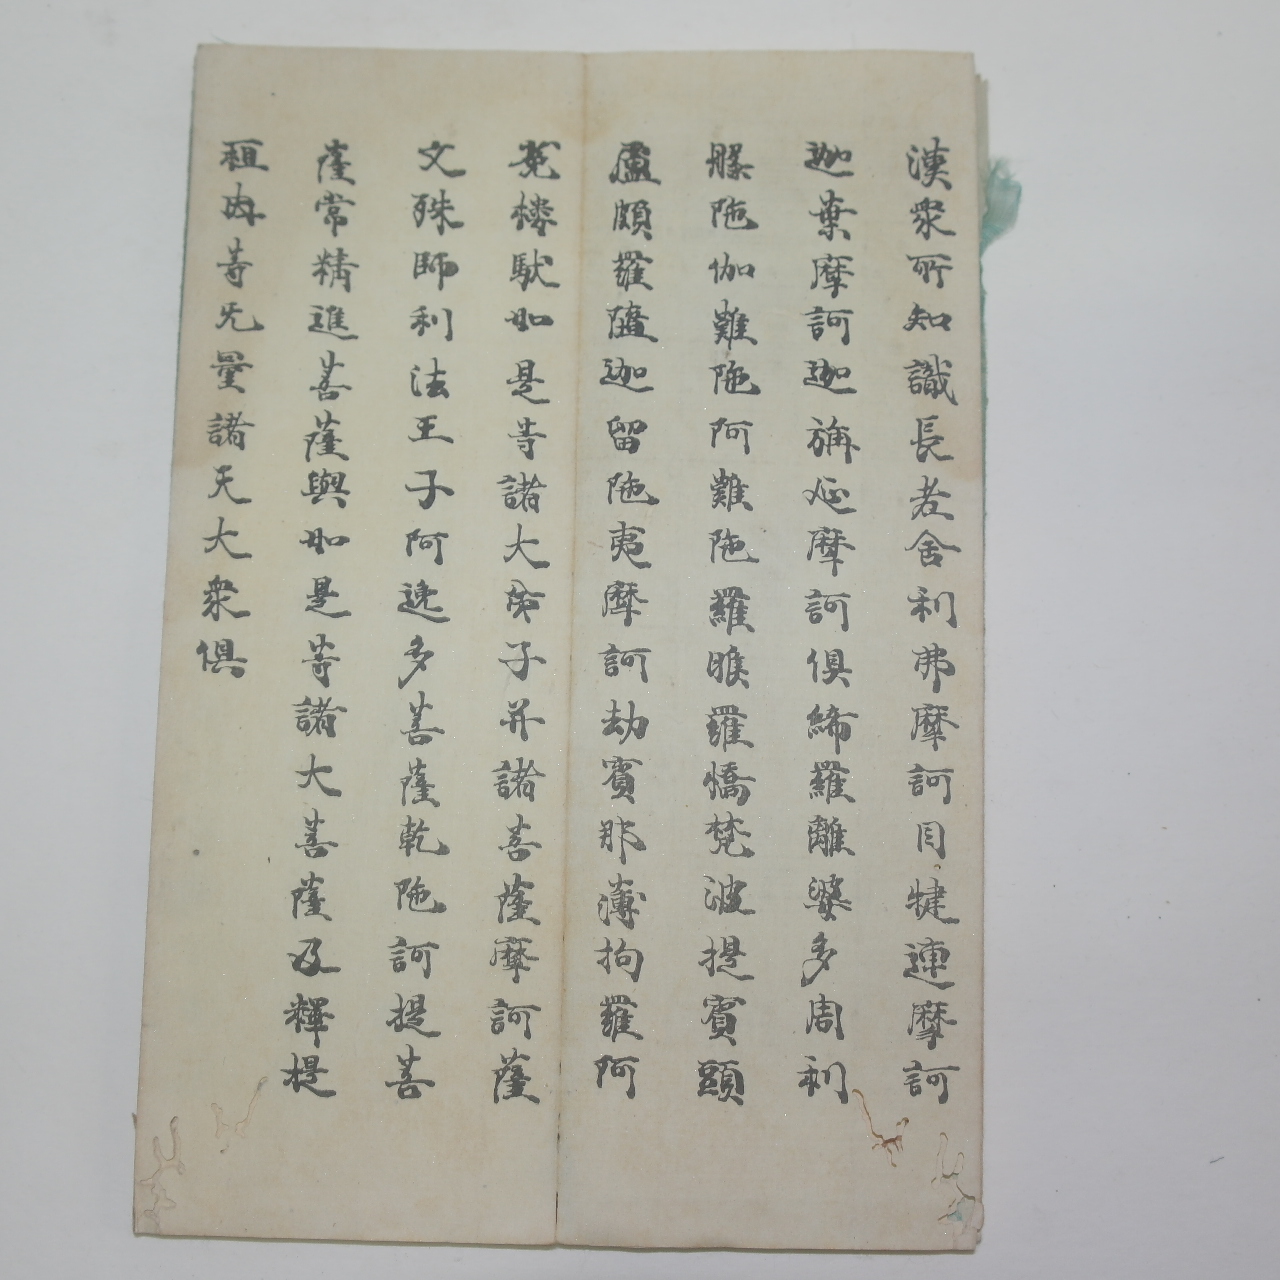 漢衆所知識長老舍利弗摩訶目揵連摩訶
迦葉摩訶迦旃延摩訶俱絺羅離婆多周利
槃陁伽難陁阿難陁羅睺羅憍梵波提賓頭
盧頗羅墮迦留陁夷摩訶劫賓那薄拘羅阿
㝹樓馱如是等諸大弟子并諸菩薩摩訶薩
文殊師利法王子阿逸多菩薩乾陁訶提菩
薩常精進菩薩與如是等諸大菩薩及釋提
桓因等无量諸天大衆俱